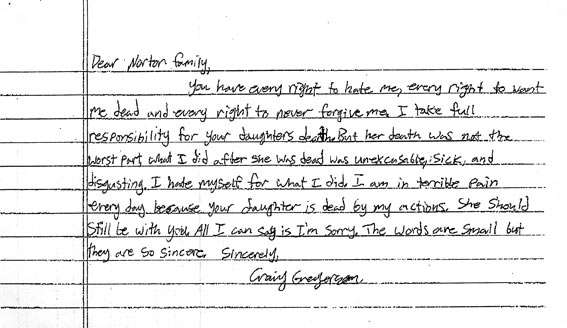 Dear Norton family,
You have every right to hate me, every right to want
me dead and every right to never forgive me. I take full
responsibility for your daughters death. But her death was not the
worst part what I did after she was dead was unexcosable, sick, and
disgusting. I hate myself for what I did. I am in terrible pain
every day because your daughter is dead by my actions. She should
still be with you. All I can say is I'm sorry. The words are small but
they are so sincere. Sincerely,
Craig